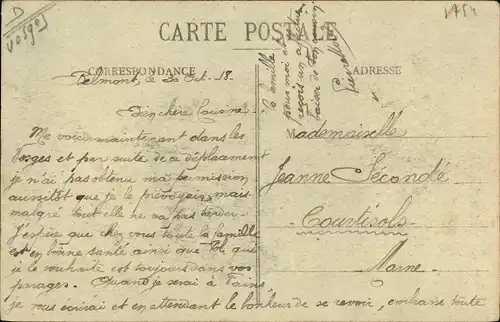 D
Vosges
1754
CARTE POSTALE
CORRESPONDANCE
ADRESSE
Belmont, le 30 Oct. 18.
Bien chère Cousine
Me voici maintenant dans les
Vosges et par suite de ce déplacement
je n'ai pas obtenu ma permission
aussitôt que je le prévoyais, mais
malgré tout elle ne va pas tarder.
J'espère que chez vous toute la famille
est en bonne santé ainsi que que
je le souhaite est toujours dans vos
parages. Quand je serai à
je vous écrirai et en attendant le bonheur de se revoir, embrasse toute
la famille
pour moi et
reçois un affectueux
baiser de ton cousin
Mademoiselle
Jeanne Secondé
Courtisols
Marne